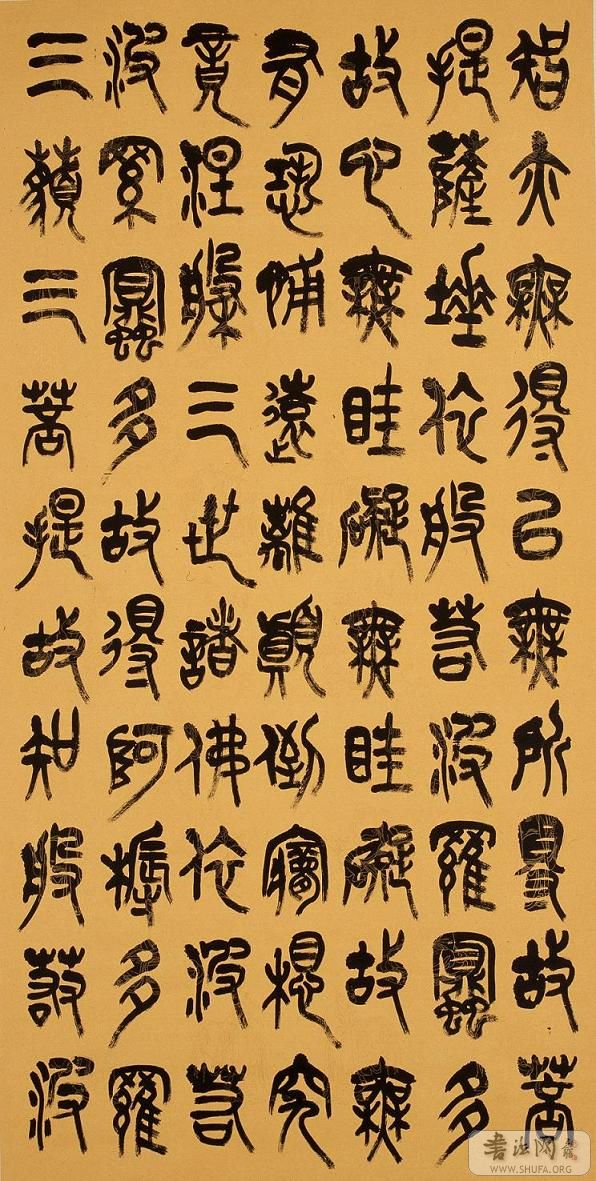 智亦無得以無所得故菩
提薩埵依般若波羅蜜多
故心無罣礙無罣礙故無
有恐怖遠離顛倒夢想究
竟涅槃三世諸佛依波若
波羅蜜多故得阿耨多羅
三藐三菩提故知般若波
書法网
WWW.SHUFA.ORG